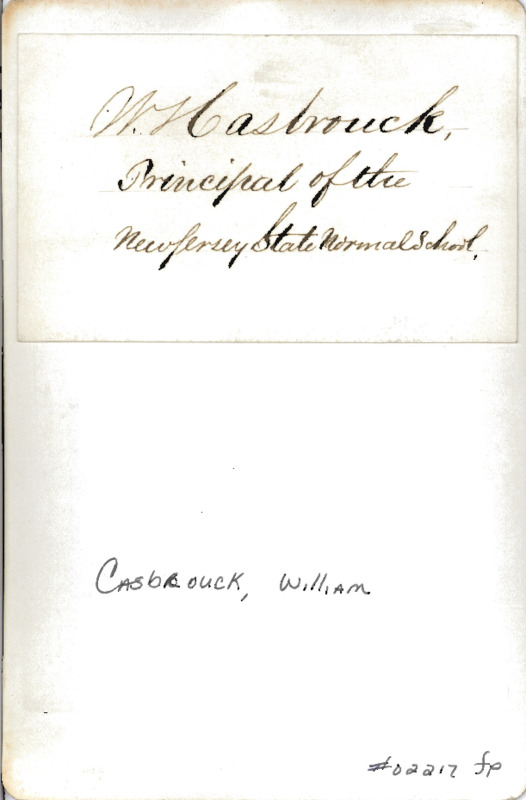 W. Hasbrouck,
Principal of the
New Jersey State Normal School.
Casbrouck, William
#02217 fp